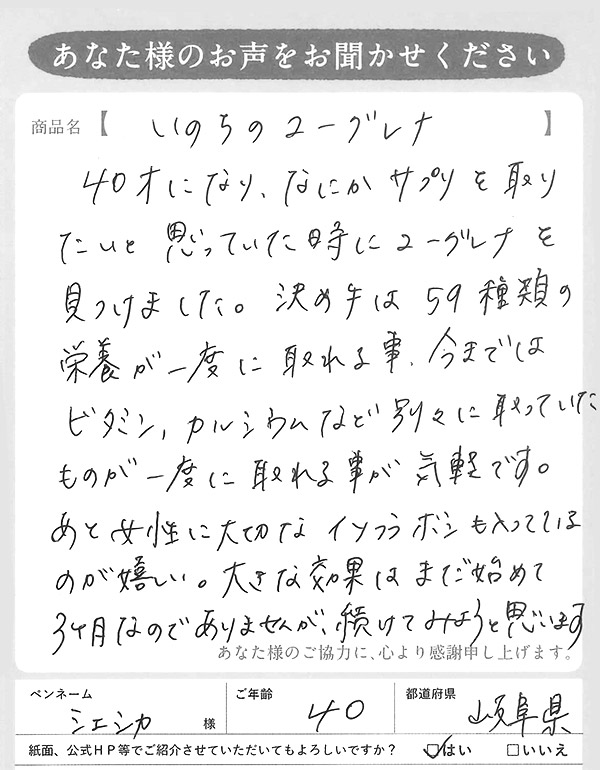 あなた様のお声をお聞かせください
商品名【 いのちのユーグレナ 】
40才になり、なにかサプリを取り
たいと思っていた時にユーグレナを
見つけました。決め手は59種類の
栄養が一度に取れる事、今までは
ビタミン,カルシウムなど別々に取っていた
ものが一度に取れる事が気軽です。
あと女性に大切なイソフラボンも入っている
のが嬉しい。大きな効果はまだ始めて
3ヶ月なのでありませんが、続けてみようと思います
あなた様のご協力に、心より感謝申し上げます。
ペンネーム シエシカ 様 ご年齢 40 都道府県 岐阜県
紙面、公式HP等でご紹介させていただいてもよろしいですか? ☑はい □いいえ